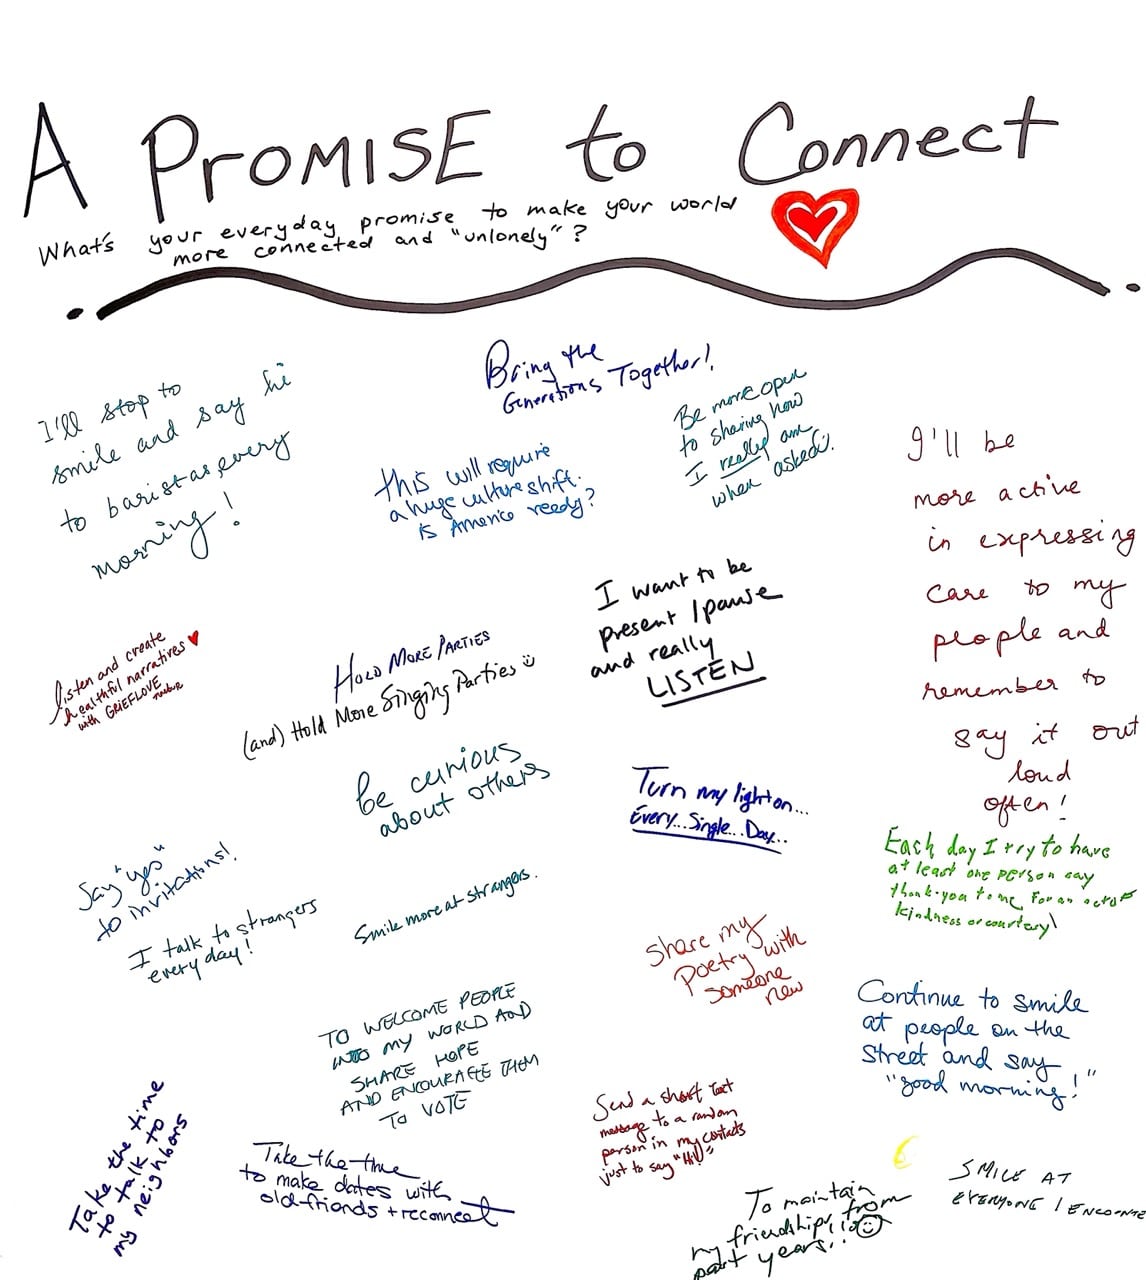 A PROMISE to Connect
What's your everyday promise to make your world
more connected and "unlonely"?
Bring the
Generations Together!
I'll stop to
smile and say hi
to baristas every
morning!
Be more open
to sharing how
I really am
when asked.
this will require
a huge culture shift.
Is America ready?
I'll be
more active
in expressing
care to my
people and
remember to
say it out
loud
often!
I want to be
present / pause
and really
LISTEN
listen and create
healthful narratives
with GRIEFLOVE
HOLD MORE PARTIES
(and) Hold More Singing Parties
Be curious
about others
Turn my light on...
Every...Single...Day...
Each day I try to have
at least one person say
thank-you to me for an act of
kindness or courtesy!
Say "yes"
to invitations!
I talk to strangers
every day!
Smile more at strangers.
Share my
Poetry with
someone
new
Continue to smile
at people on the
street and say
"good morning!"
TO WELCOME PEOPLE
INTO MY WORLD AND
SHARE HOPE
AND ENCOURAGE THEM
TO VOTE
Take the time
to talk to
my neighbors
Send a short text
message to a random
person in my contacts
just to say "Hi!"
Take the time
to make dates with
old friends + reconnect
To maintain
my friendships from
past years..
SMILE AT
EVERYONE I ENCOUNTE